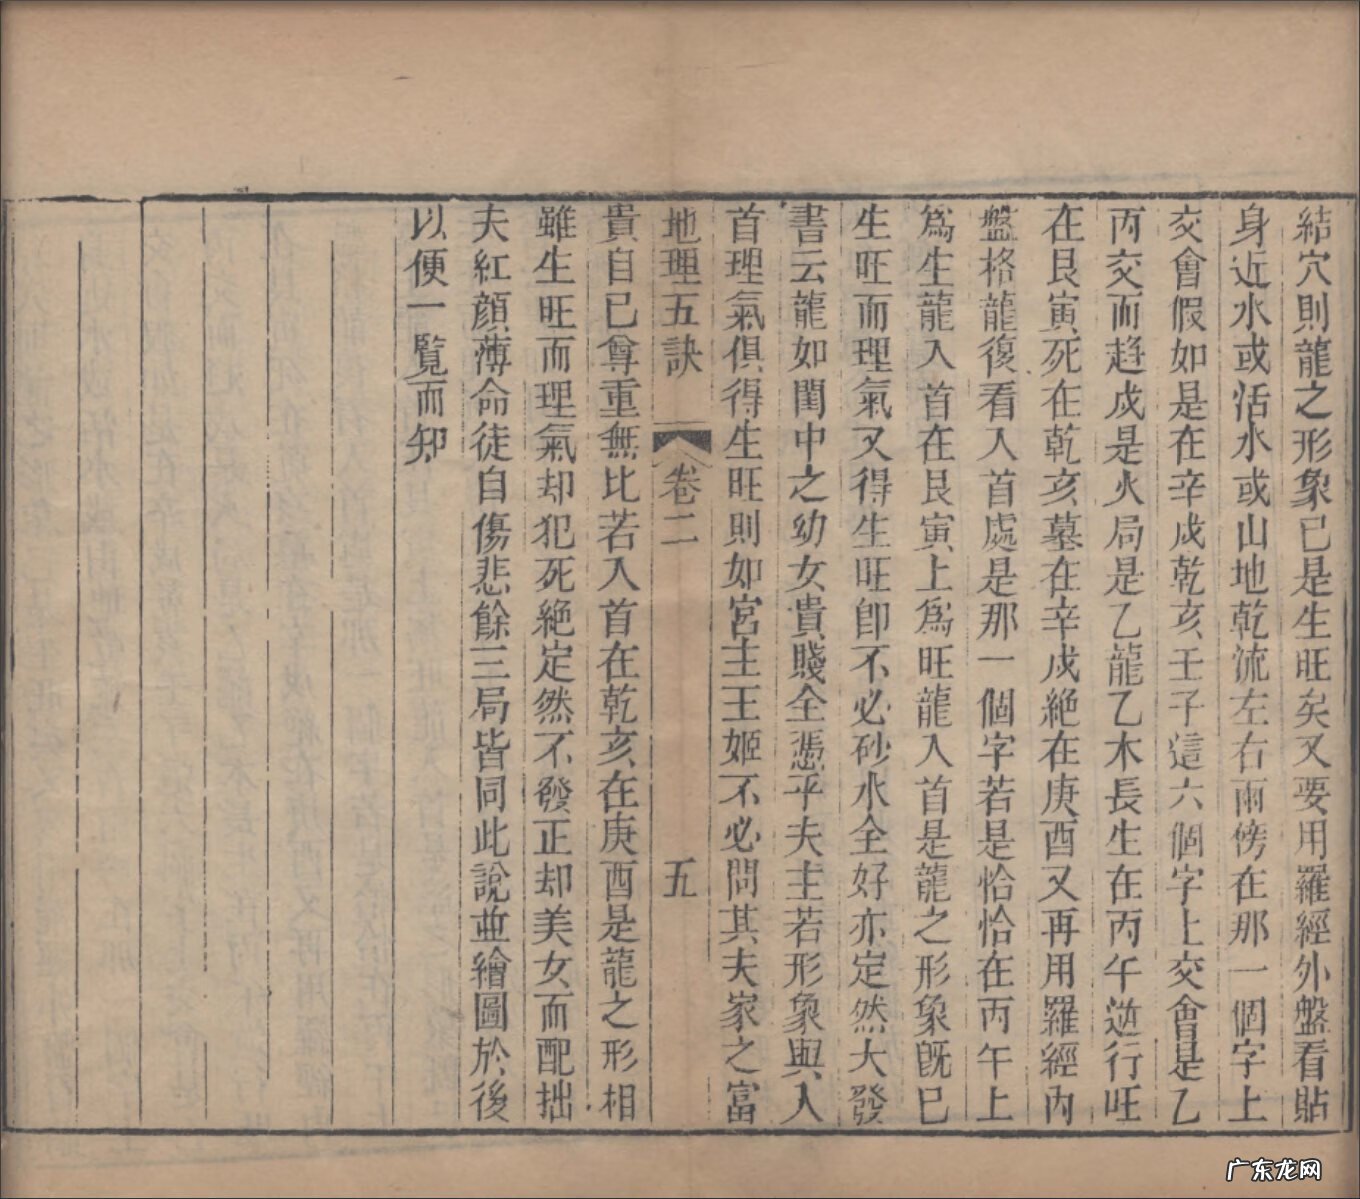 結穴則龍之形象已是生旺矣又要用羅經外盤看貼
身近水或活水或山地乾流左右兩傍在那一個字上
交會假如是在辛戌乾亥壬子這六個字上交會是乙
丙交而趋戌是火局是乙龍乙木長生在丙午逆行旺
在艮寅死在乾亥墓在辛戌絕在庚酉又再用羅經內
盤格龍復看入首處是那一個字若是恰恰在丙午上
爲生龍入首在艮寅上爲旺龍入首是龍之形象既已
生旺而理氣又得生旺卽不必砂水全好亦定然大發
書云龍如閨中之幼女貴賤全憑乎夫主若形象與入
首理氣俱得生旺則如宮主王姬不必問其夫家之富
地理五訣 卷二 五
貴自已尊重無比若入首在乾亥在庚酉是龍之形相
雖生旺而理氣却犯死絕定然不發正却美女而配拙
夫紅顏薄命徒自傷悲餘三局皆同此說並繪圖於後
以便一覧而知
广东龙网